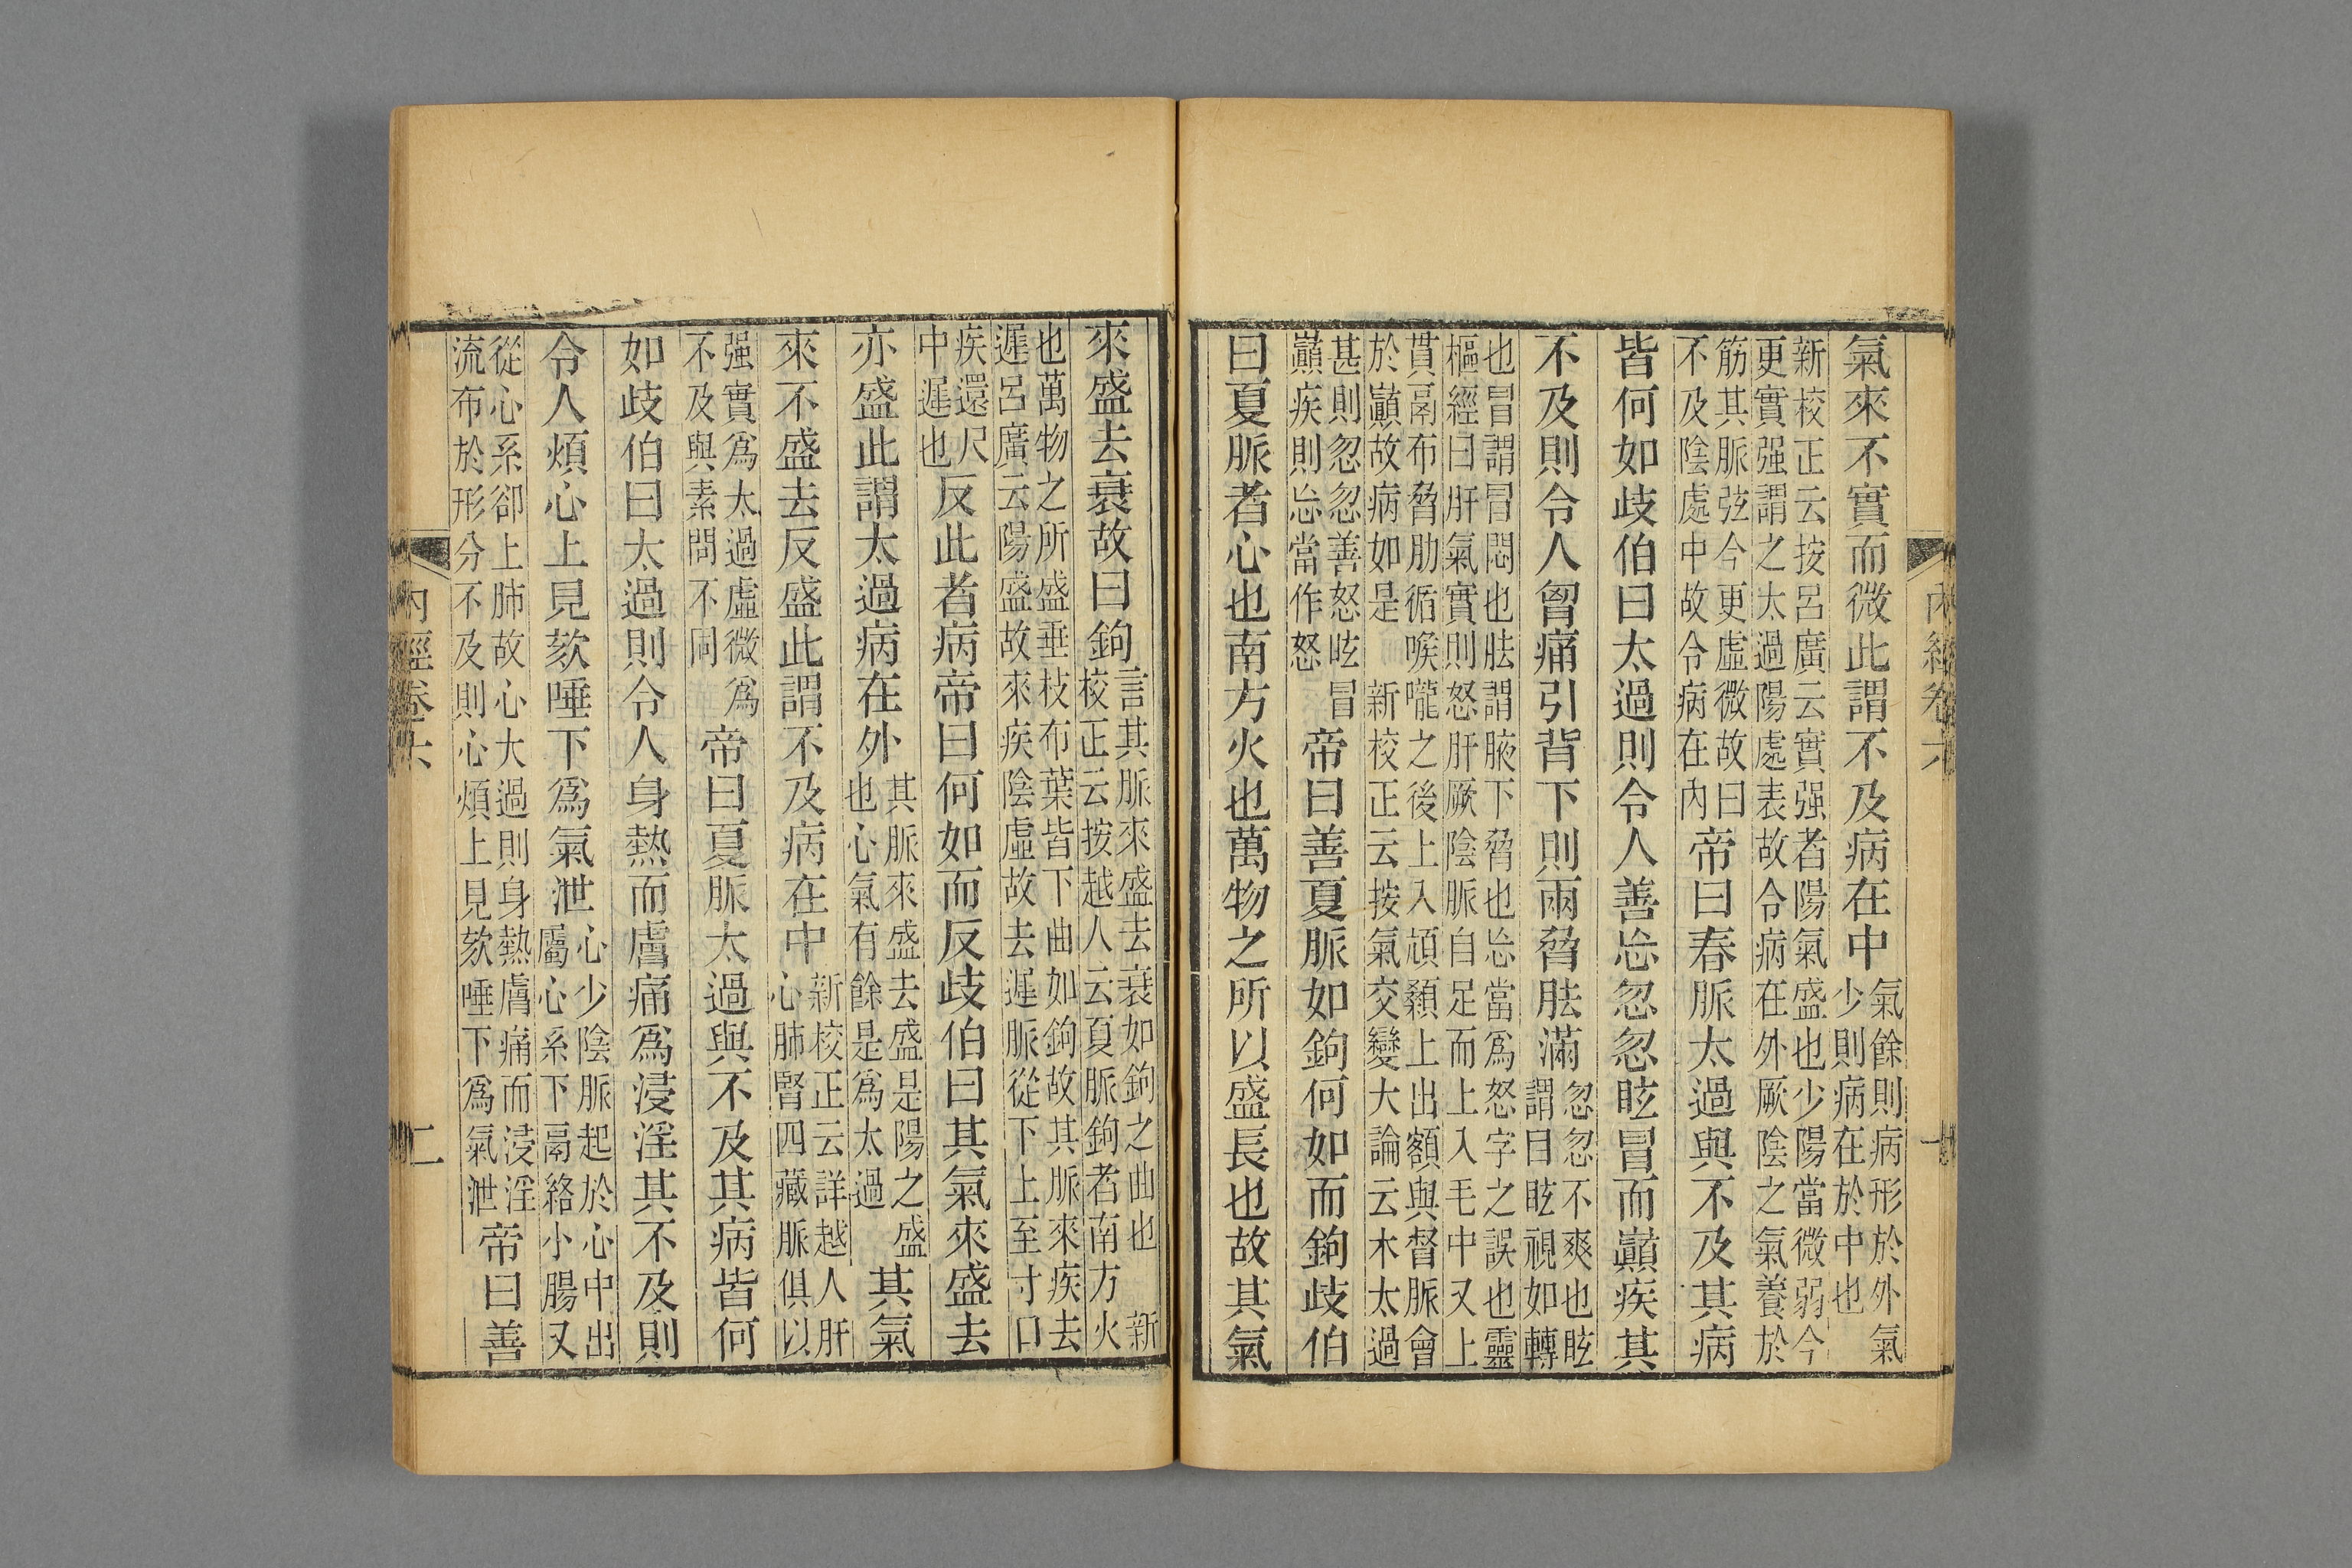 氣來不實而微此謂不及病在中
氣餘則病形於外氣
少則病在於中也
新校正云按呂廣云實强者陽氣盛也少陽當微弱今
更實强謂之太過陽處表故令病在外厥陰之氣養於
筋其脈弦今更虛微故曰
不及陰處中故令病在內
帝曰春脈太過與不及其病
皆何如歧伯曰太過則令人善忘忽忽眩冒而巔疾其
不及則令人胷痛引背下則兩脅胠滿
忽忽不爽也眩
謂曰眩視如轉
也冒謂冒悶也胠謂腋下脅也忘當爲怒字之誤也靈
樞經曰肝氣實則怒肝厥陰脈自足而上入毛中又上
貫鬲布脅肋循喉嚨之後上入頏顙上出額與督脈會
於巔故病如是 新校正云按氣交變大論云木太過
甚則忽忽善怒眩冒
巔疾則忘當作怒
帝曰善夏脈如鉤何如而鉤歧伯
曰夏脈者心也南方火也萬物之所以盛長也故其氣
內經卷六
一
來盛去衰故曰鉤
言其脈來盛去衰如鉤之曲也 新
校正云按越人云夏脈鉤者南方火
也萬物之所盛垂枝布葉皆下曲如鉤故其脈來疾去
遲呂廣云陽盛故來疾陰虛故去遲脈從下上至寸口
疾還尺
中遲也
反此者病帝曰何如而反歧伯曰其氣來盛去
亦盛此謂太過病在外
其脈來盛去盛是陽之盛
也心氣有餘是爲太過
其氣
來不盛去反盛此謂不及病在中
新校正云詳越人肝
心肺腎四藏脈俱以
强實爲太過虛微爲
不及與素問不同
帝曰夏脈太過與不及其病皆何
如歧伯曰太過則令人身熱而膚痛爲浸淫其不及則
令人煩心上見欬唾下爲氣泄
心少陰脈起於心中出
屬心系下鬲絡小腸又
從心系卻上肺故心太過則身熱膚痛而浸淫
流布於形分不及則心煩上見欬唾下爲氣泄
帝曰善
內經卷六
二